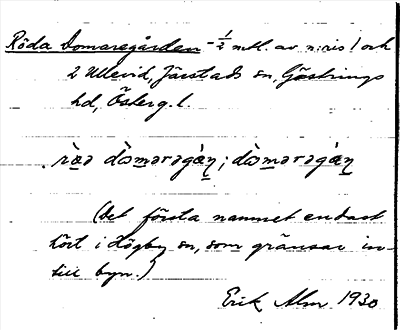 Röda Domaregården - 1/2 mtl. av n:ris 1 och
2 Ullevid, Järstads sn, Göstrings
hd, Österg. l.
ròa dòmaragàɳ; dòmaragàɳ
(Det första namnet endast
hört i Högby sn, som gränsar in-
till byn.)
Erik Alm 1930